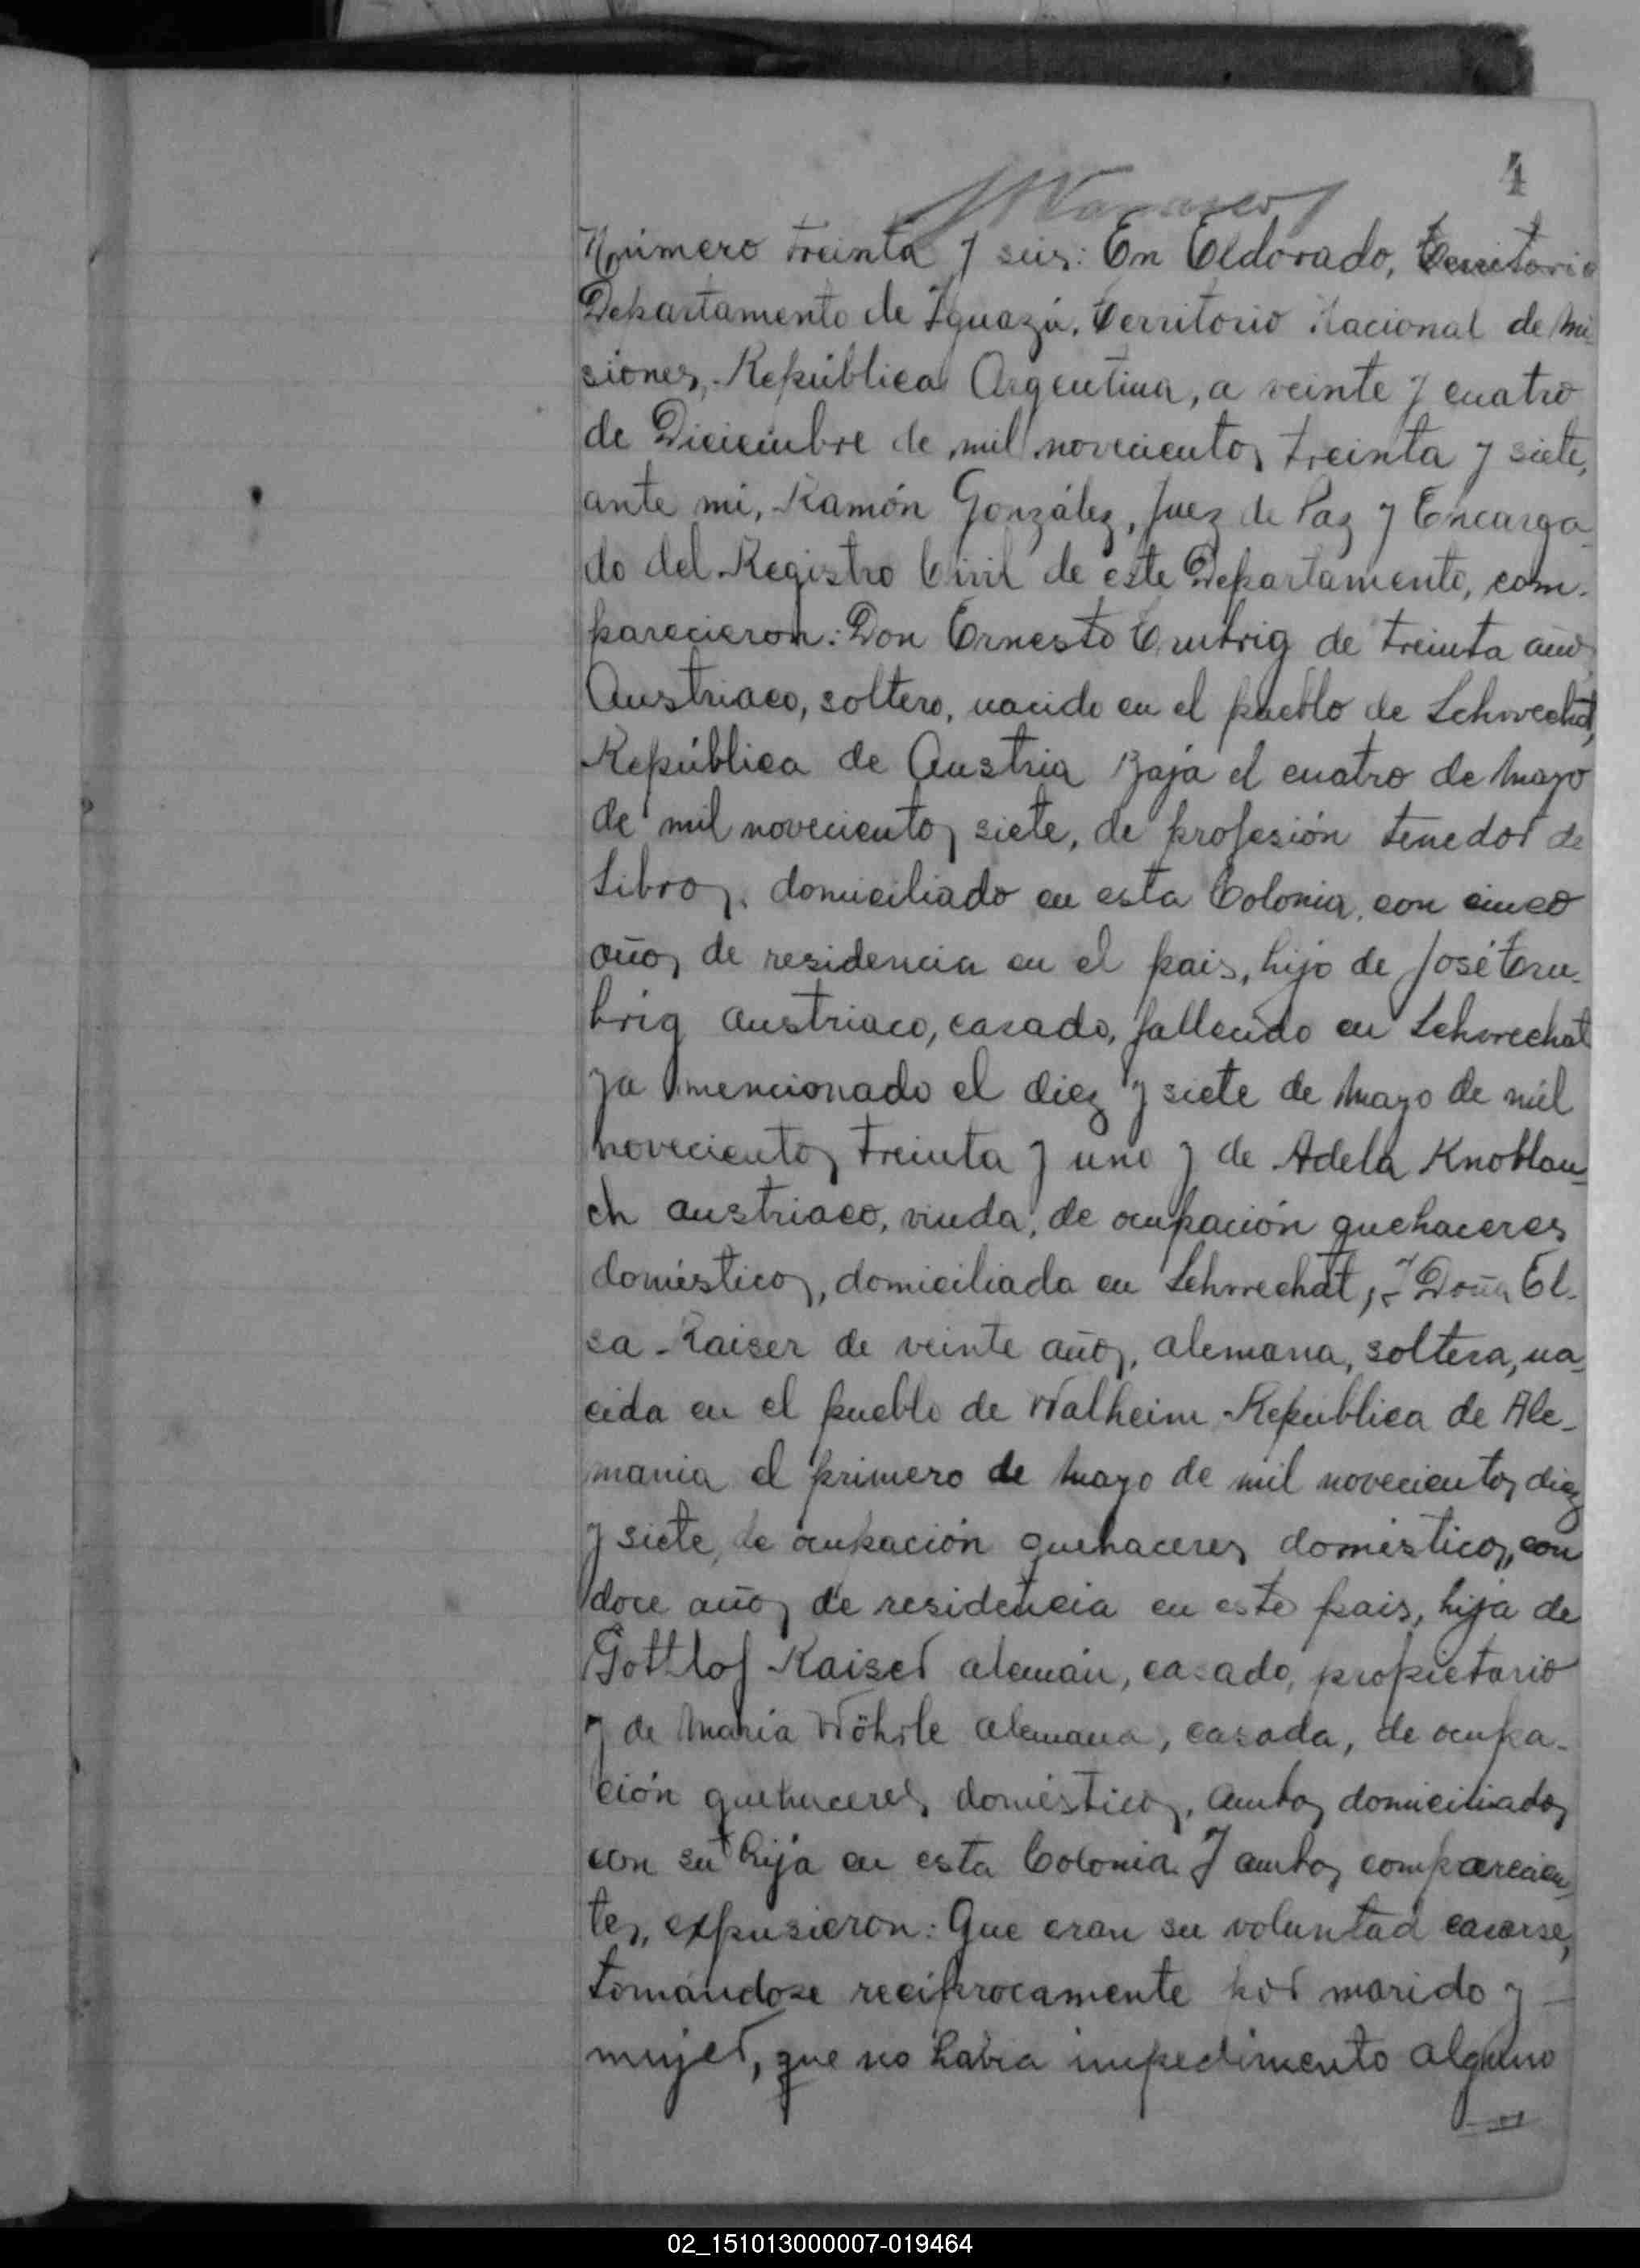 4
Número treinta y seis: En Eldorado, Territorio
Departamento de Iguazú, Territorio Nacional de Mi-
siones, República Argentina, a veinte y cuatro
de Diciembre de mil novecientos treinta y siete,
ante mi, Ramón González, Juez de Paz y Encarga-
do del Registro Civil de este Departamento, com-
parecieron: Don Ernesto de treinta años
Austriaco, soltero, nacido en el pueblo de Schwechat,
República de Austria Baja el cuatro de Mayo
de mil novecientos siete, de profesión tenedor de
Libros, domiciliado en esta Colonia, con cinco
años de residencia en el pais, hijo de José
austriaco, casado, fallecido en Schwechat
ya mencionado el diez y siete de Mayo de mil
novecientos treinta y uno y de Adela Knoblau-
ch austriaco, viuda, de ocupación quehaceres
domésticos, domiciliada en Schwechat, y Doña El-
sa Kaiser de veinte años, alemana, soltera, na-
cida en el pueblo de Walheim República de Ale-
mania el primero de Mayo de mil novecientos diez
y siete, de ocupación quehaceres domésticos, con
doce años de residencia en este pais, hija de
Gottlof Kaiser alemán, casado, propietario
y de María Wöhrle alemana, casada, de ocupa-
ción quehaceres domésticos, ambos domiciliados
con su hija en esta Colonia. Y ambos comparecien-
tes, expusieron: Que eran su voluntad casarse,
tomándose recíprocamente por marido y
mujer, que no habia impedimento alguno
02_151013000007-019464